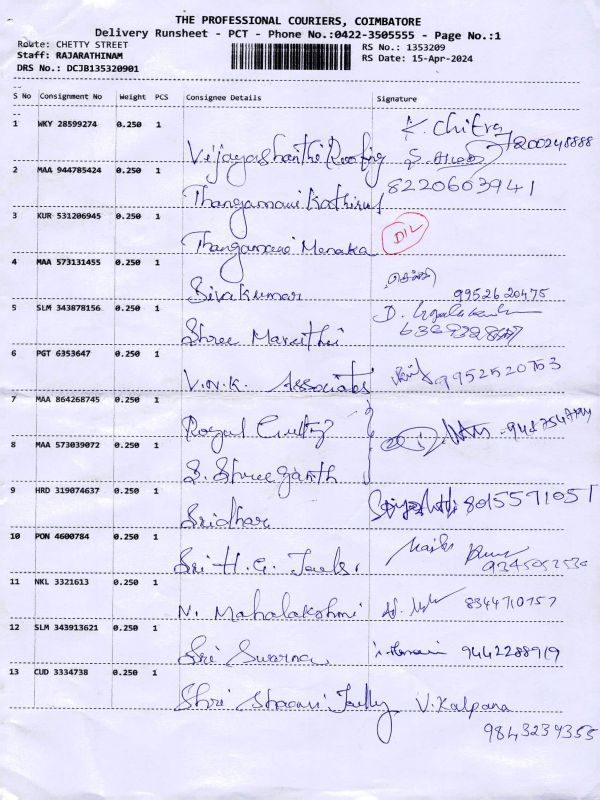 THE PROFESSIONAL COURIERS, COIMBATORE
Delivery Runsheet - PCT - Phone No.:0422-3505555 - Page No.:1
Route: CHETTY STREET
Staff: RAJARATHINAM
DRS No.: DCJB135320901
RS No.: 1353209
RS Date: 15-Apr-2024
S No Consignment No Weight PCS Consignee Details Signature
1 WKY 28599274 0.250 1 Vijayashanthi Roofing K. Chitra 7200248888
2 MAA 944785424 0.250 1 Thangamani Kathirvel 8220603941
3 KUR 531206945 0.250 1 Thangamani Menaka DIL
4 MAA 573131455 0.250 1 Sivakumar 9952620475
5 SLM 343878156 0.250 1 Shree D.
6 PGT 6353647 0.250 1 V.N.K. Associates 9952520703
7 MAA 864268745 0.250 1 Royal
8 MAA 573039072 0.250 1 S. Shreeganth
9 HRD 319074637 0.250 1 Sridhar 8015571051
10 PON 4600784 0.250 1 Sri H.G.
11 NKL 3321613 0.250 1 N. Mahalakshmi 8344710757
12 SLM 343913621 0.250 1 Sri Swarna 9442288919
13 CUD 3334738 0.250 1 Shri V. Kalpana
9843239355